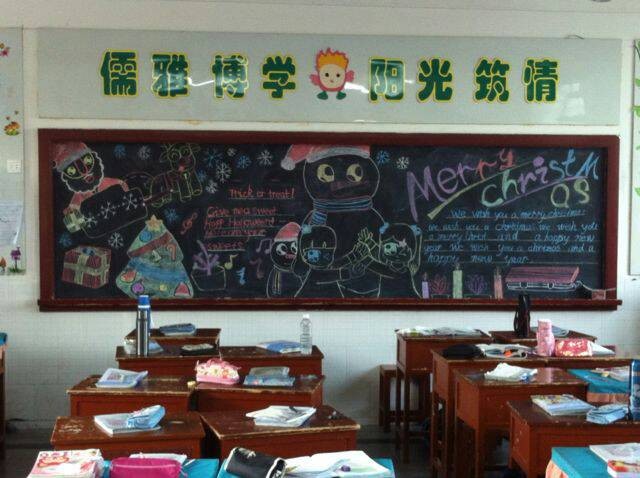 儒雅 博学 阳光 筑情
Trick or treat!
Give me a sweet
Merry
christm
as
We wish you a merry christmas
we wish you a christmas we wish you
a merry christ and a happy new
year we wish you a christmas and a
happy new year